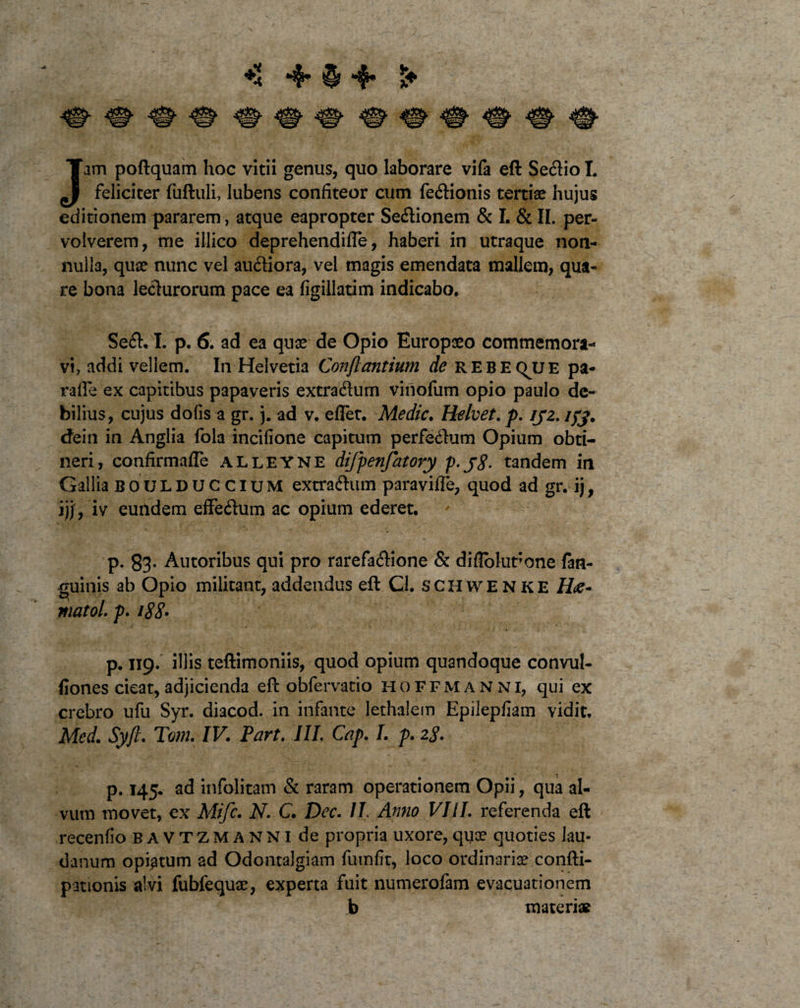 Jam poſtquam hoc vitii genus, quo laborare viſa eſt Sectio I.
feliciter ſuſtuli, lubens confiteor cum ſectionis tertiæ hujus
editionem pararem, atque eapropter Sectionem & I. & II. per-
volverem, me illico deprehendiſſe, haberi in utraque non-
nulla, quæ nunc vel auctiora, vel magis emendata mallem, qua-
re bona lecturorum pace ea ſigillatim indicabo.
Sect. I. p. 6. ad ea quæ de Opio Europæo commemora-
vi, addi vellem. In Helvetia Conſtantium de REBEQUE pa-
raſſe ex capitibus papaveris extractum vinoſum opio paulo de-
bilius, cujus doſis a gr. j. ad v. eſſet. Medic. Helvet. p. 152. 153.
dein in Anglia ſola inciſione capitum perfectum Opium obti-
neri, confirmaſſe ALLEYNE diſpenſatory p. 58. tandem in
Gallia BOULDUCCIUM extractum paraviſſe, quod ad gr. ij,
iij, iv eundem effectum ac opium ederet.
p. 83. Autoribus qui pro rarefactione & diſſolutione ſan-
guinis ab Opio militant, addendus eſt Cl. SCHWENKE Hæ-
matol. p. 188.
p. 119. illis teſtimoniis, quod opium quandoque convul-
ſiones cieat, adjicienda eſt obſervatio HOFFMANNI, qui ex
crebro uſu Syr. diacod. in infante lethalem Epilepſiam vidit.
Med. Syſt. Tom. IV. Part. III. Cap. I. p. 28.
p. 145. ad inſolitam & raram operationem Opii, qua al-
vum movet, ex Miſc. N. C. Dec. II. Anno VIII. referenda eſt
recenſio BAVTZMANNI de propria uxore, quæ quoties lau-
danum opiatum ad Odontalgiam ſumſit, loco ordinariæ conſti-
pationis alvi ſubſequæ, experta fuit numeroſam evacuationem
b materiæ